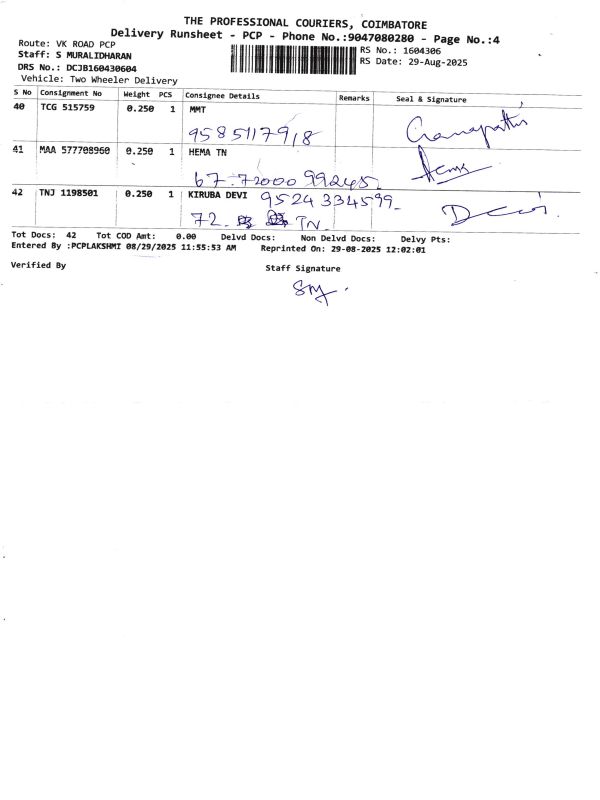 THE PROFESSIONAL COURIERS, COIMBATORE
Delivery Runsheet - PCP - Phone No.:9047080280 - Page No.:4
Route: VK ROAD PCP
Staff: S MURALIDHARAN
DRS No.: DCJB160430604
Vehicle: Two Wheeler Delivery
RS No.: 1604306
RS Date: 29-Aug-2025
S No Consignment No Weight PCS Consignee Details Remarks Seal & Signature
40 TCG 515759 0.250 1 MMT
9585117918
41 MAA 577708960 0.250 1 HEMA TN
67.72000 99245.
42 TNJ 1198501 0.250 1 KIRUBA DEVI 9524334599-
72. TN.
Tot Docs: 42 Tot COD Amt: 0.00 Delvd Docs: Non Delvd Docs: Delvy Pts:
Entered By :PCPLAKSHMI 08/29/2025 11:55:53 AM Reprinted On: 29-08-2025 12:02:01
Verified By
Staff Signature